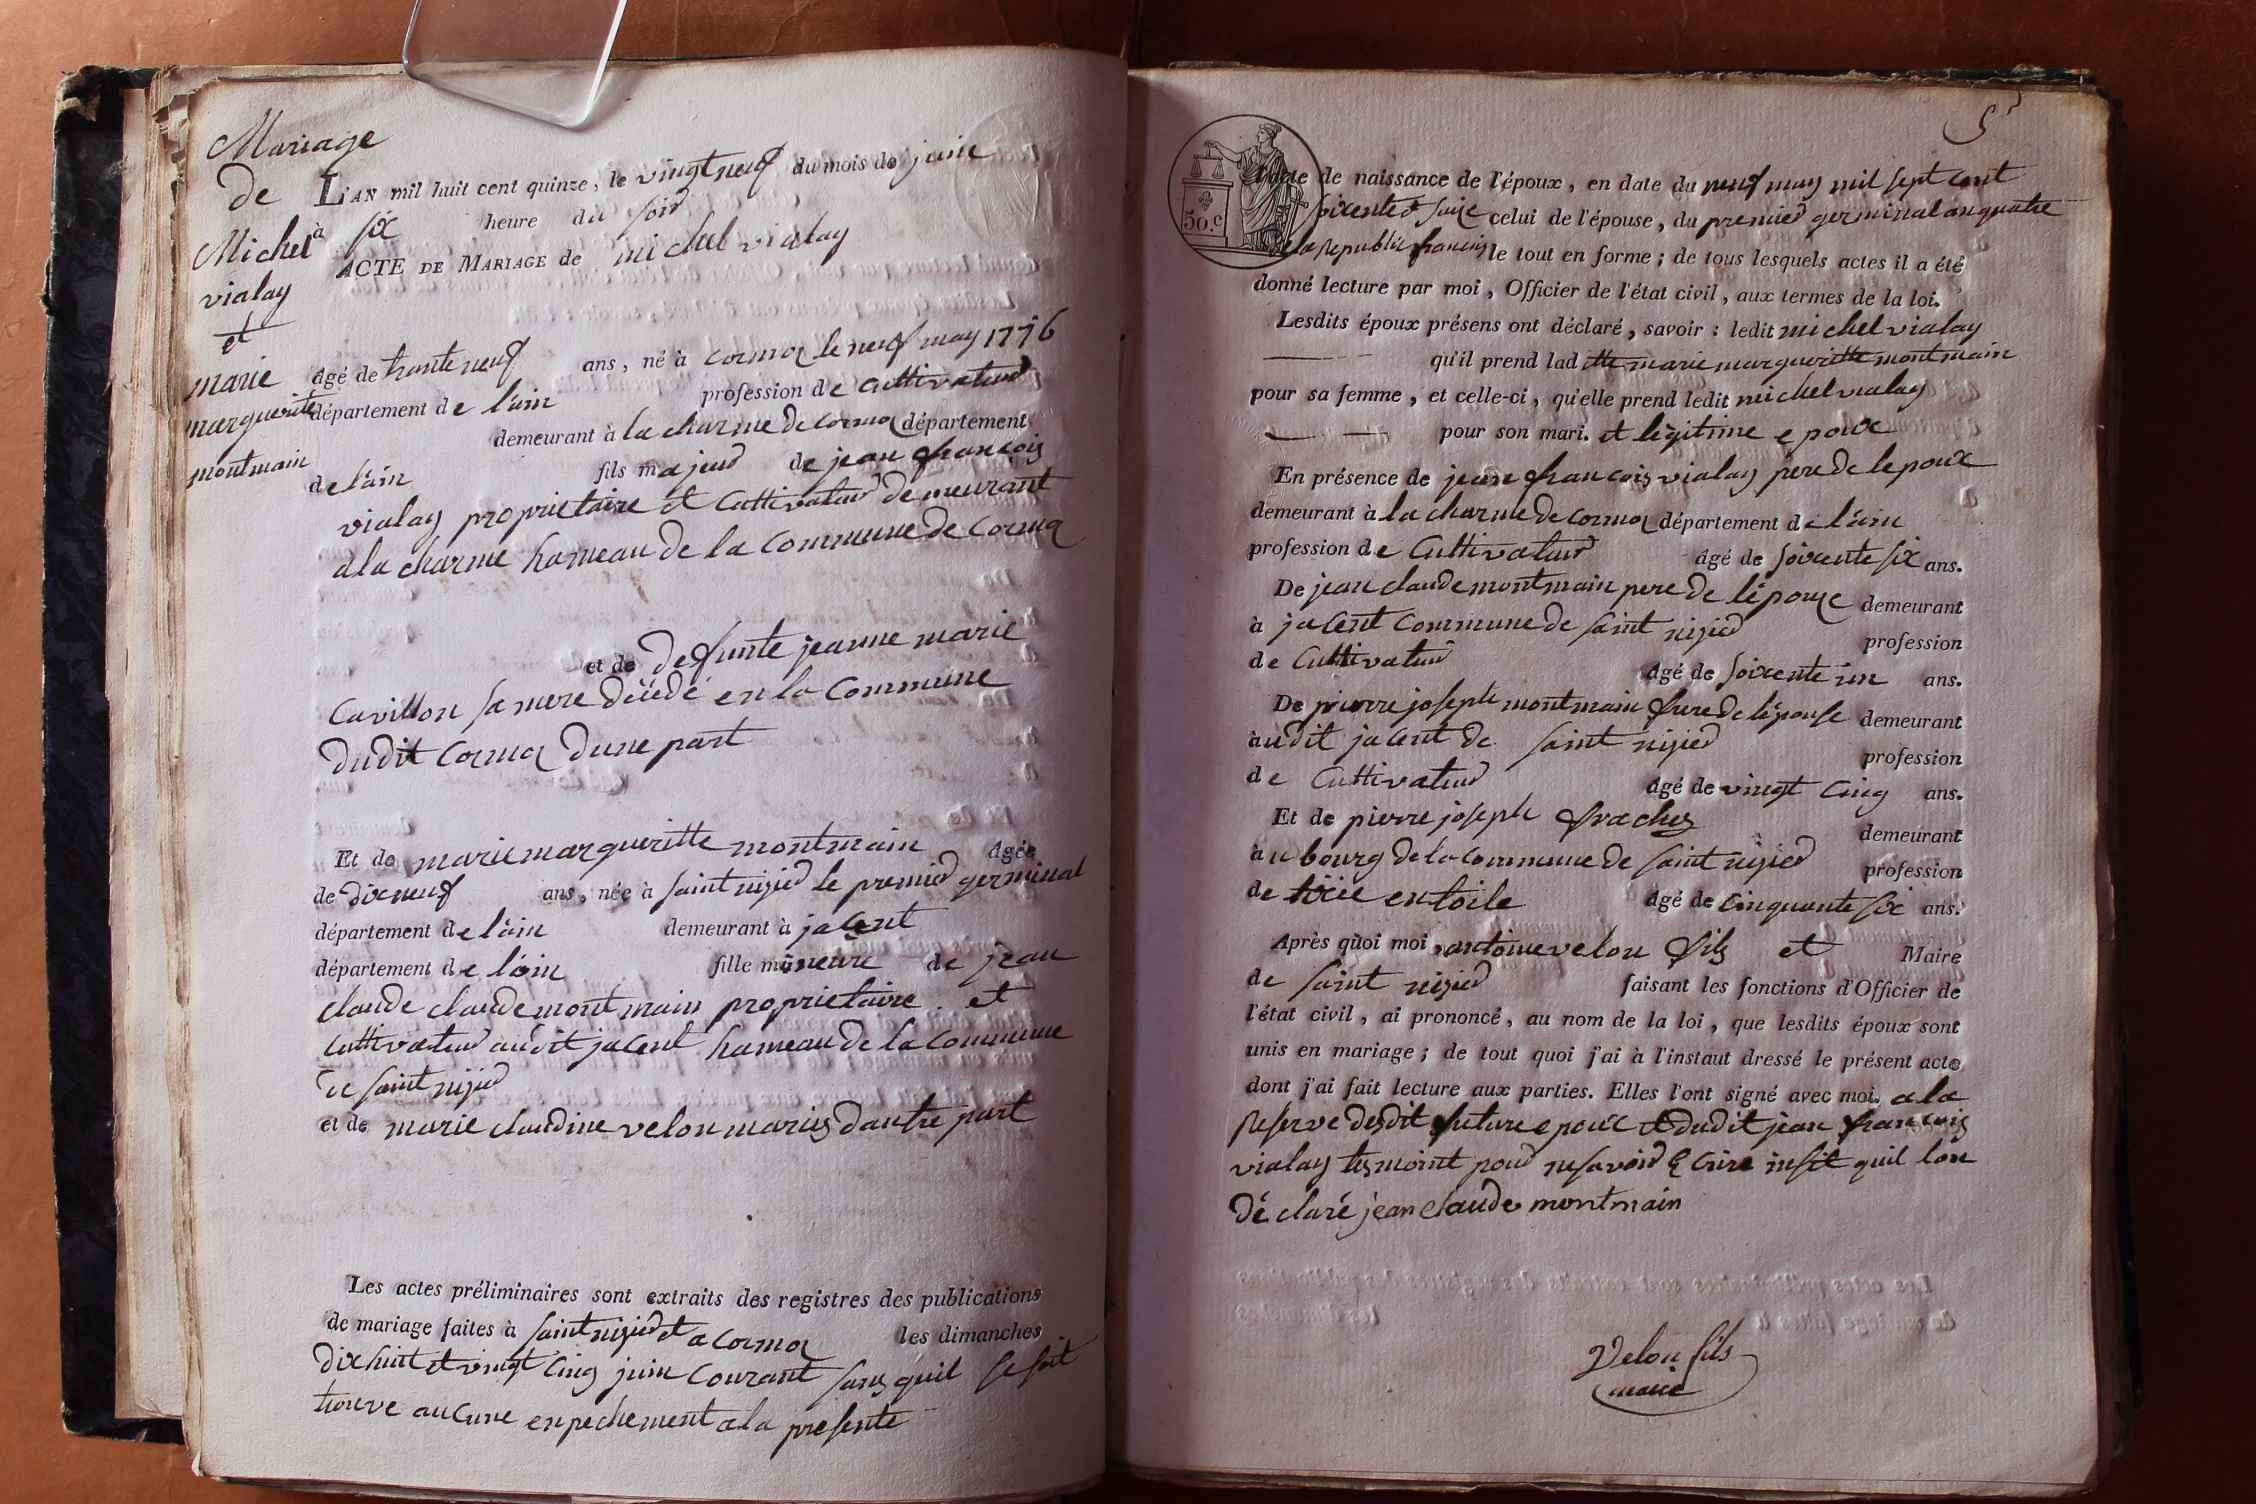 Mariage
de
Michel
vialay
et
marie
margueritte
montmain
L'AN mil huit cent quinze, le vingt neuf du mois de juin
à six heure du soir
ACTE DE MARIAGE de michel vialay
âgé de trente neuf ans, né à cormoz le neuf may 1776
département de l'ain profession de cultivateur
demeurant à la charme de cormoz département
de l'ain fils majeur de jean francois
vialay proprietaire et cultivateur demeurant
a la charme hameau de la commune de cormoz
et de defunte jeanne marie
Cavillon sa mere décédé en la commune
dudit cormoz dune part
Et de marie margueritte montmain âgée
de dix neuf ans, née à saint nizier le premier germinal
département de l'ain demeurant à jacent
département de l'ain fille mineure de jean
claude claude montmain proprietaire et
cultivateur audit jacent hameau de la commune
de saint nizier
et de marie claudine velon mariés dautre part
Les actes préliminaires sont extraits des registres des publications
de mariage faites à saint nizier et a cormoz les dimanches
dix huit et vingt cinq juin courant sans quil se soit
trouve aucune enpechement a la presente
5
50.c
l'acte de naissance de l'époux, en date du neuf may mil sept cent
soixente et seize celui de l'épouse, du premier germinal an quatre
de la republic francais le tout en forme; de tous lesquels actes il a été
donné lecture par moi, Officier de l'état civil, aux termes de la loi.
Lesdits époux présens ont déclaré, savoir: ledit michel vialay
qu'il prend laditte marie margueritte montmain
pour sa femme, et celle-ci, qu'elle prend ledit michel vialay
pour son mari. et légitime epoux
En présence de jean francois vialay pere de lepoux
demeurant à la charme de cormoz département de l'ain
profession de cultivateur âgé de soixente six ans.
De jean claude montmain pere de l'épouze demeurant
à jacent commune de saint nizier profession
de cultivateur âgé de soixente un ans.
De pierre joseph montmain frere de l'épouse demeurant
audit jacent de saint nizier profession
de cultivateur âgé de vingt cinq ans.
Et de pierre joseph frachez demeurant
au bourg de la commune de saint nizier profession
de tixie en toile âgé de cinquante six ans.
Après quoi moi, antoine velon fils et Maire
de saint nizier faisant les fonctions d'Officier de
l'état civil, ai prononcé, au nom de la loi, que lesdits époux sont
unis en mariage; de tout quoi j'ai à l'instaut dressé le présent acte
dont j'ai fait lecture aux parties. Elles l'ont signé avec moi. a la
reserve desdit future epoux et dudit jean francois
vialay tesmoint pour ne savoir écrire insit quil lon
déclaré jean claude montmain
Velon fils
maire